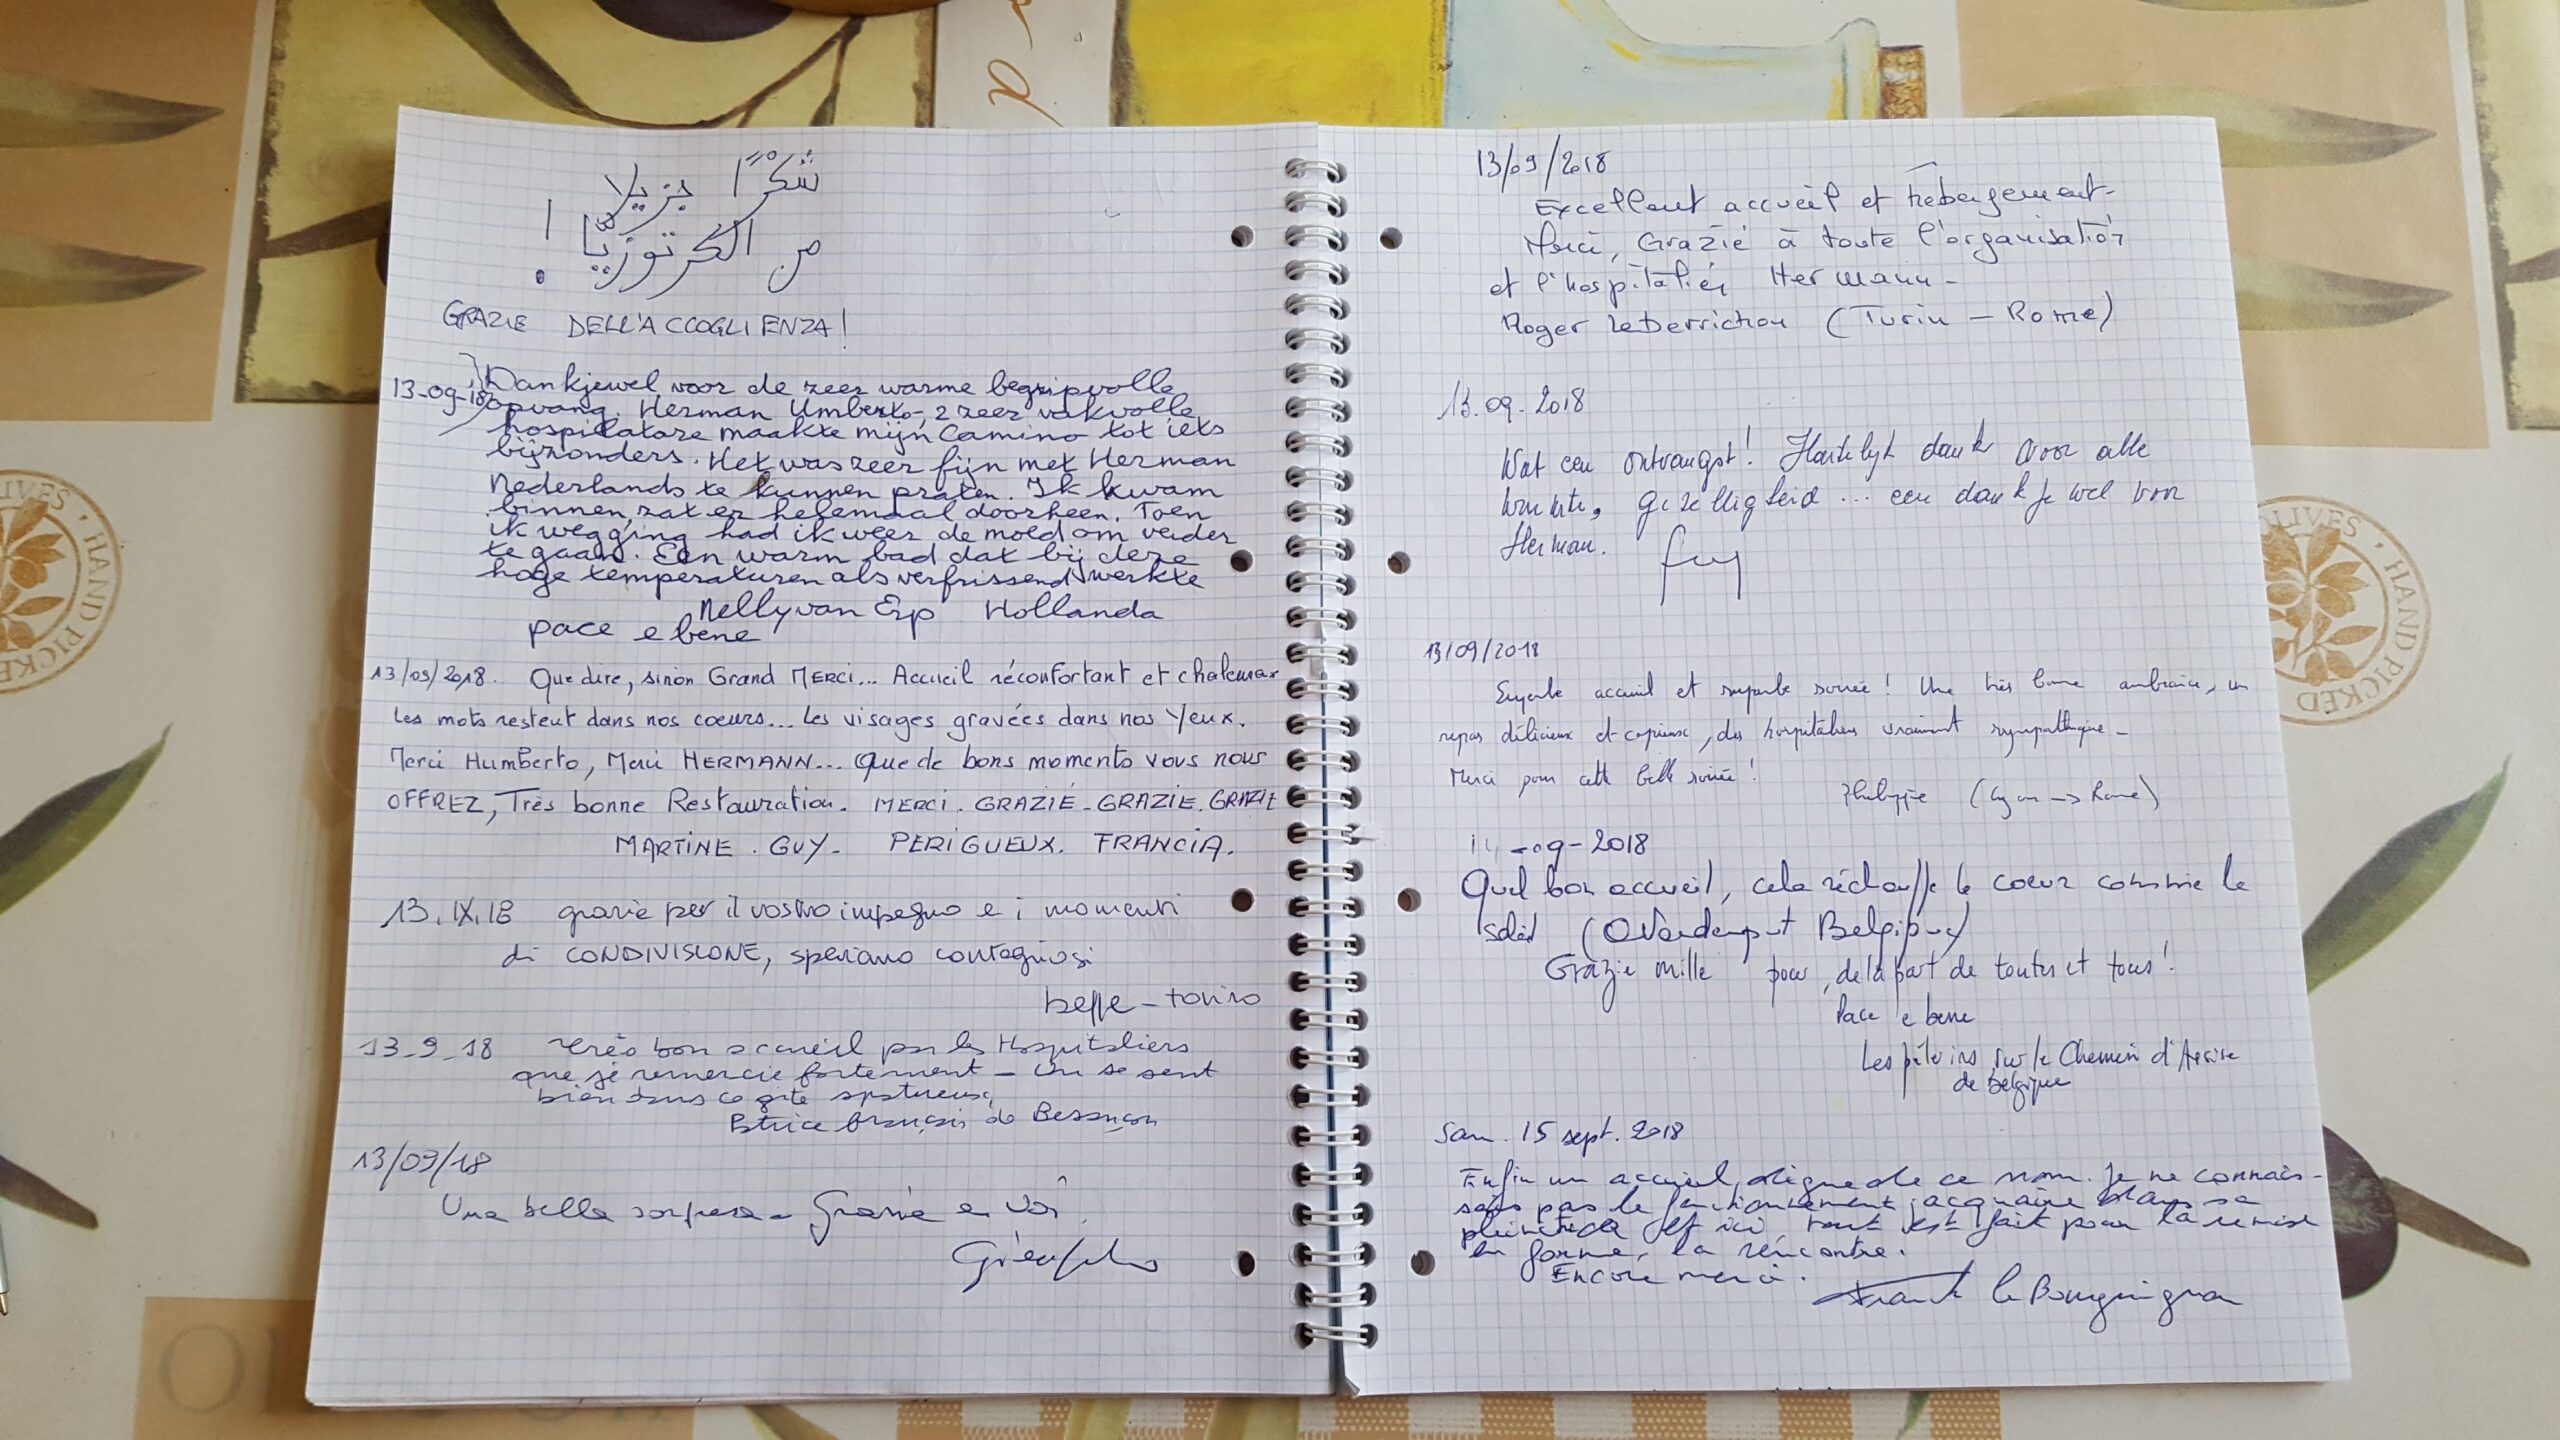 شكرًا جزيلا
من الكرتوزيّا !
GRAZIE DELL'ACCOGLIENZA!
13-09-18 Dankjewel voor de zeer warme begripvolle
opvang. Herman Umberto, 2 zeer vakvolle
hospilatare maakte mijn Camino tot iets
bijzonders. Het was zeer fijn met Herman
Nederlands te kunnen praten. Ik kwam
binnen zat er helemaal doorheen. Toen
ik wegging had ik weer de moed om verder
te gaan. Een warm bad dat bij deze
hoge temperaturen als verfrissend werkte
Nelly van Erp Hollanda
pace e bene
13/09/2018. Que dire, sinon Grand MERCI... Accueil réconfortant et chaleureux
Les mots restent dans nos coeurs... Les visages gravées dans nos Yeux.
Merci Humberto, Merci HERMANN... Que de bons moments vous nous
OFFREZ, Très bonne Restauration. MERCI. GRAZIÉ. GRAZIE. GRAZIE
MARTINE. GUY. PERIGUEUX. FRANCIA.
13.IX.18 grazie per il vostro impegno e i momenti
di CONDIVISIONE, speriamo contagiosi
beppe - torino
13-9-18 très bon accueil par les Hospitaliers
que je remercie fortement - On se sent
bien dans ce gite
français de Besançon
13/09/18
Una bella sorpresa - Grazie a voi.
13/09/2018
Excellent accueil et hebergement-
Merci, Grazie à toute l'organisation
et l'hospitalier Hermann-
Roger Lederrichon (Turin - Rome)
13.09.2018
Wat een ontvangst! Hartelijk dank voor alle
warmte, gezelligheid ... een dank je wel voor
Herman.
13/09/2018
Superbe accueil et superbe soirée! Une très bonne ambiance, un
repas délicieux et copieux, des hospitaliers vraiment sympathique-
Merci pour cette belle soirée!
Philippe (Lyon -> Rome)
14-09-2018
Quel bon accueil, cela réchauffe le coeur comme le
soleil
Grazie mille pour, de la part de toutes et tous!
Pace e bene
Les pèlerins sur le Chemin d'Assise
de Belgique
Sam. 15 sept. 2018
Enfin un accueil digne de ce nom. Je ne connais-
sais pas le fonctionnement jacquaire dans sa
plénitude et ici, tout est fait pour la remise
en forme, la rencontre.
Encore merci.
Franck le Bourguignon
OLIVES · HAND PICKED
OLIVES · HAND PICKED